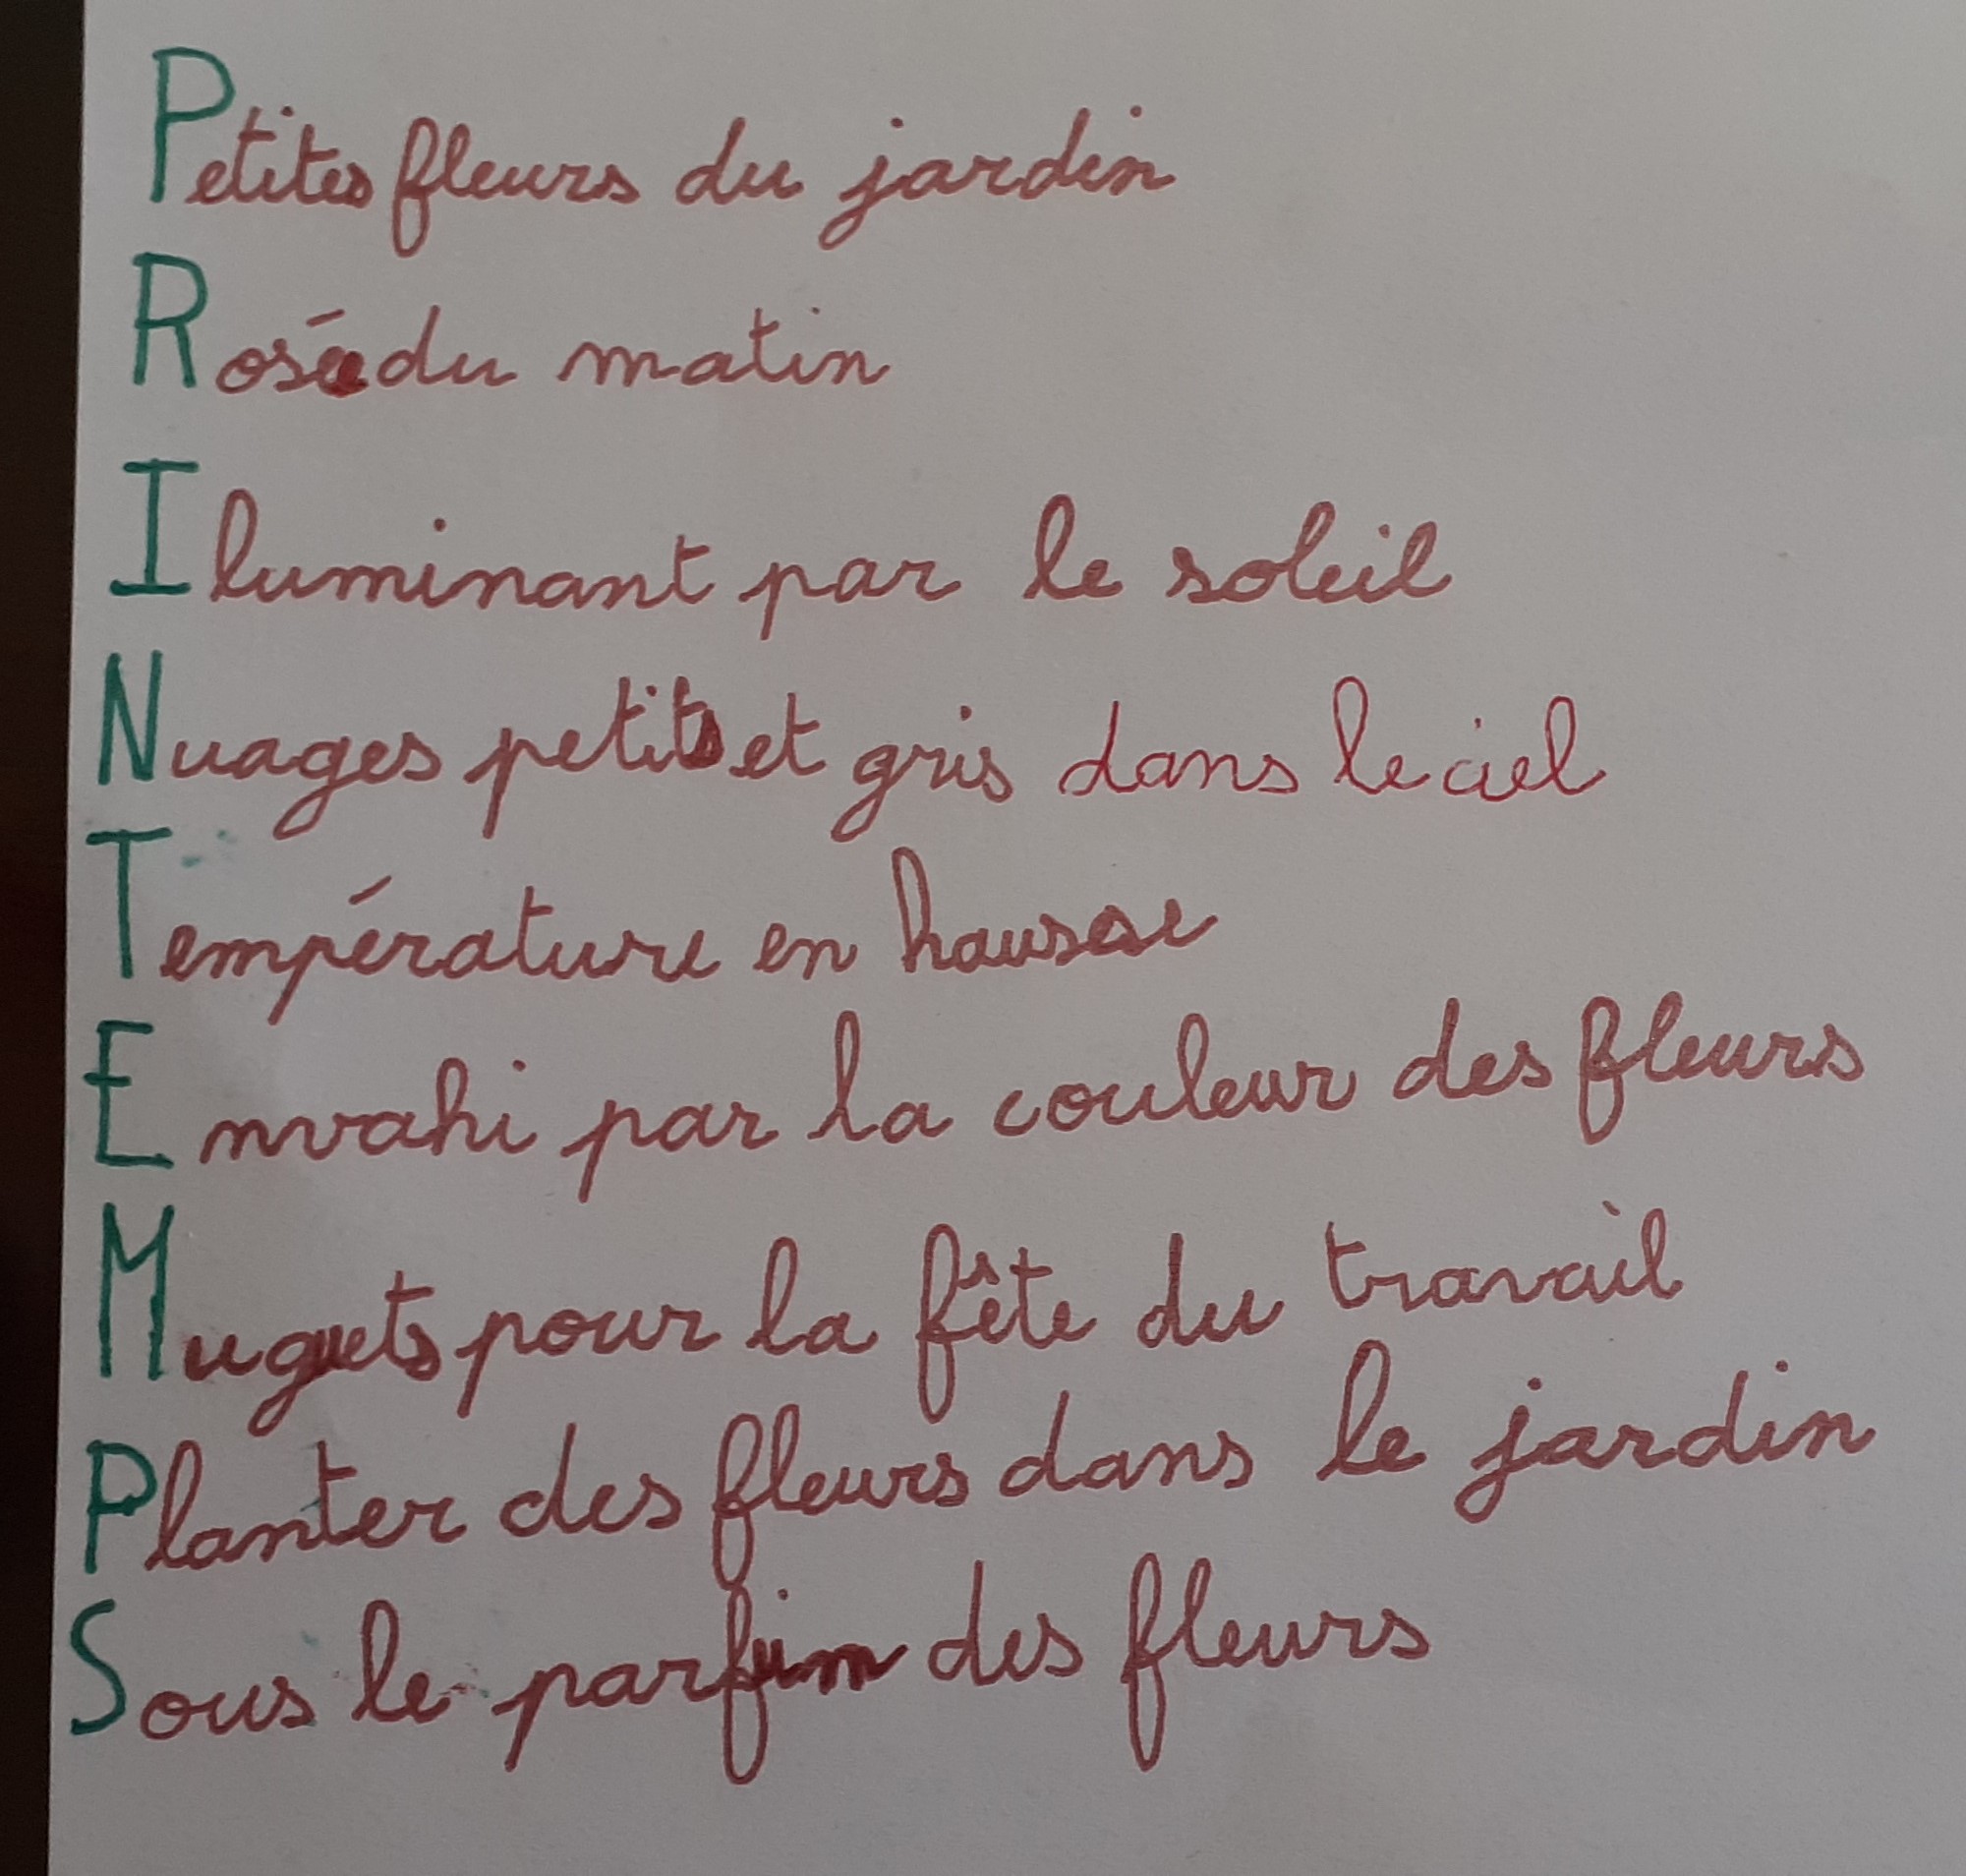 Petites fleurs du jardin
Rosée du matin
Iluminant par le soleil
Nuages petits et gris dans le ciel
Température en hausse
Envahi par la couleur des fleurs
Muguets pour la fête du travail
Planter des fleurs dans le jardin
Sous le parfum des fleurs